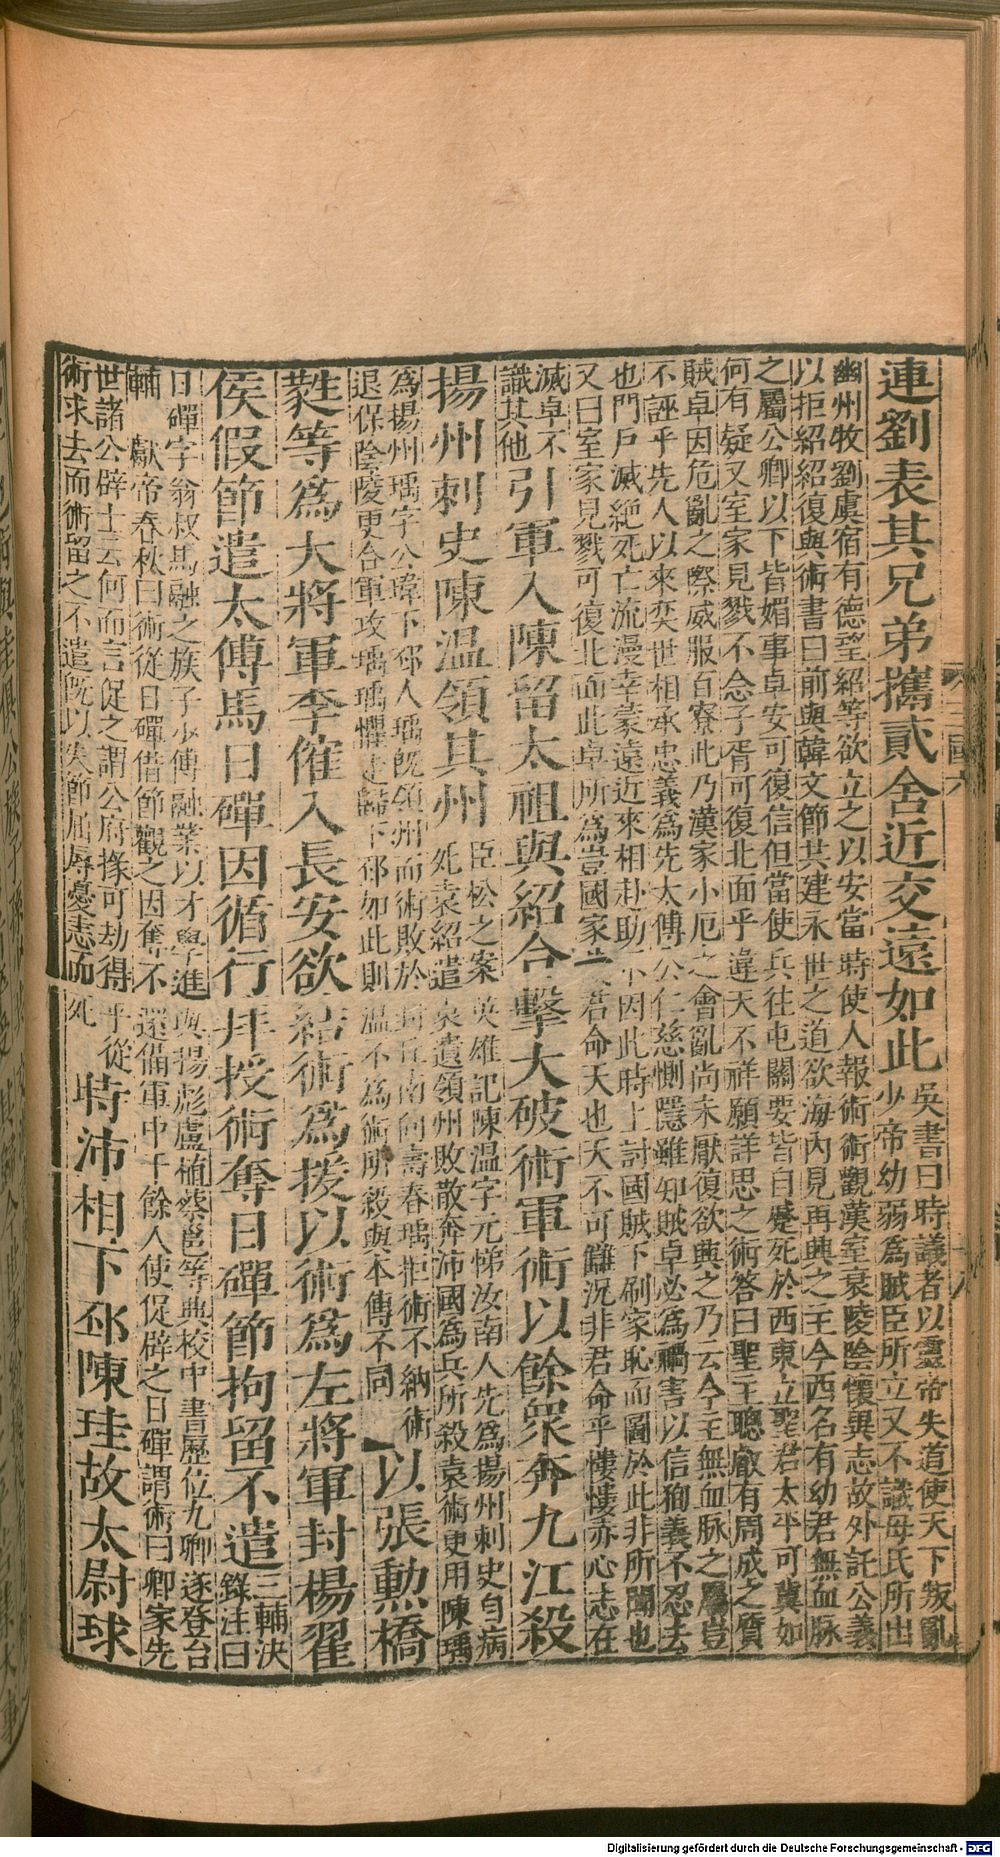 連劉表其兄弟攜貳舍近交遠如此
吳書曰時議者以靈帝失道使天下叛亂
少帝幼弱爲賊臣所立又不識母氏所出
幽州牧劉虞宿有德望紹等欲立之以安當時使人報術術觀漢室衰陵陰懷異志故外託公義
以拒紹紹復與術書曰前與韓文節共建永世之道欲海內見再興之主今西名有幼君無血脉
之屬公卿以下皆媚事卓安可復信但當使兵往屯關要皆自蹙死於西東立聖君太平可冀如
何有疑又室家見戮不念子胥可復北面乎違天不祥願詳思之術答曰聖主聰叡有周成之質
賊卓因危亂之際威服百寮此乃漢家小厄之會亂尚未厭復欲興之乃云今主無血脉之屬豈
不誣乎先人以來奕世相承忠義爲先太傅公仁慈惻隱雖知賊卓必爲禍害以信徇義不忍去
也門戶滅絕死亡流漫幸蒙遠近來相赴助不因此時上討國賊下刷家恥而圖於此非所聞也
又曰室家見戮可復北面此卓所爲豈國家哉君命天也天不可讎況非君命乎慺慺赤心志在
滅卓不
識其他
引軍入陳留太祖與紹合擊大破術軍術以餘衆奔九江殺
揚州刺史陳温領其州
臣松之案英雄記陳温字元悌汝南人先爲揚州刺史自病
死袁紹遣袁遺領州敗散奔沛國爲兵所殺袁術更用陳瑀
爲揚州瑀字公瑋下邳人瑀旣領州而術敗於封丘南向壽春瑀拒術不納術
退保陰陵更合軍攻瑀瑀懼走歸下邳如此則温不爲術所殺與本傳不同
以張勲橋
蕤等爲大將軍李傕入長安欲結術爲援以術爲左將軍封楊翟
侯假節遣太傅馬日磾因循行拜授術奪日磾節拘留不遣
三輔決
錄注曰
日磾字翁叔馬融之族子少傳融業以才學進與揚彪盧植蔡邕等典校中書歷位九卿遂登台
輔 獻帝春秋曰術從日磾借節觀之因奪不還備軍中十餘人使促辟之日磾謂術曰卿家先
世諸公辟士云何而言促之謂公府掾可劫得乎從
術求去而術留之不遣旣以失節屈辱憂恚而死
時沛相下邳陳珪故太尉球
三國六
Digitalisierung gefördert durch die Deutsche Forschungsgemeinschaft - DFG